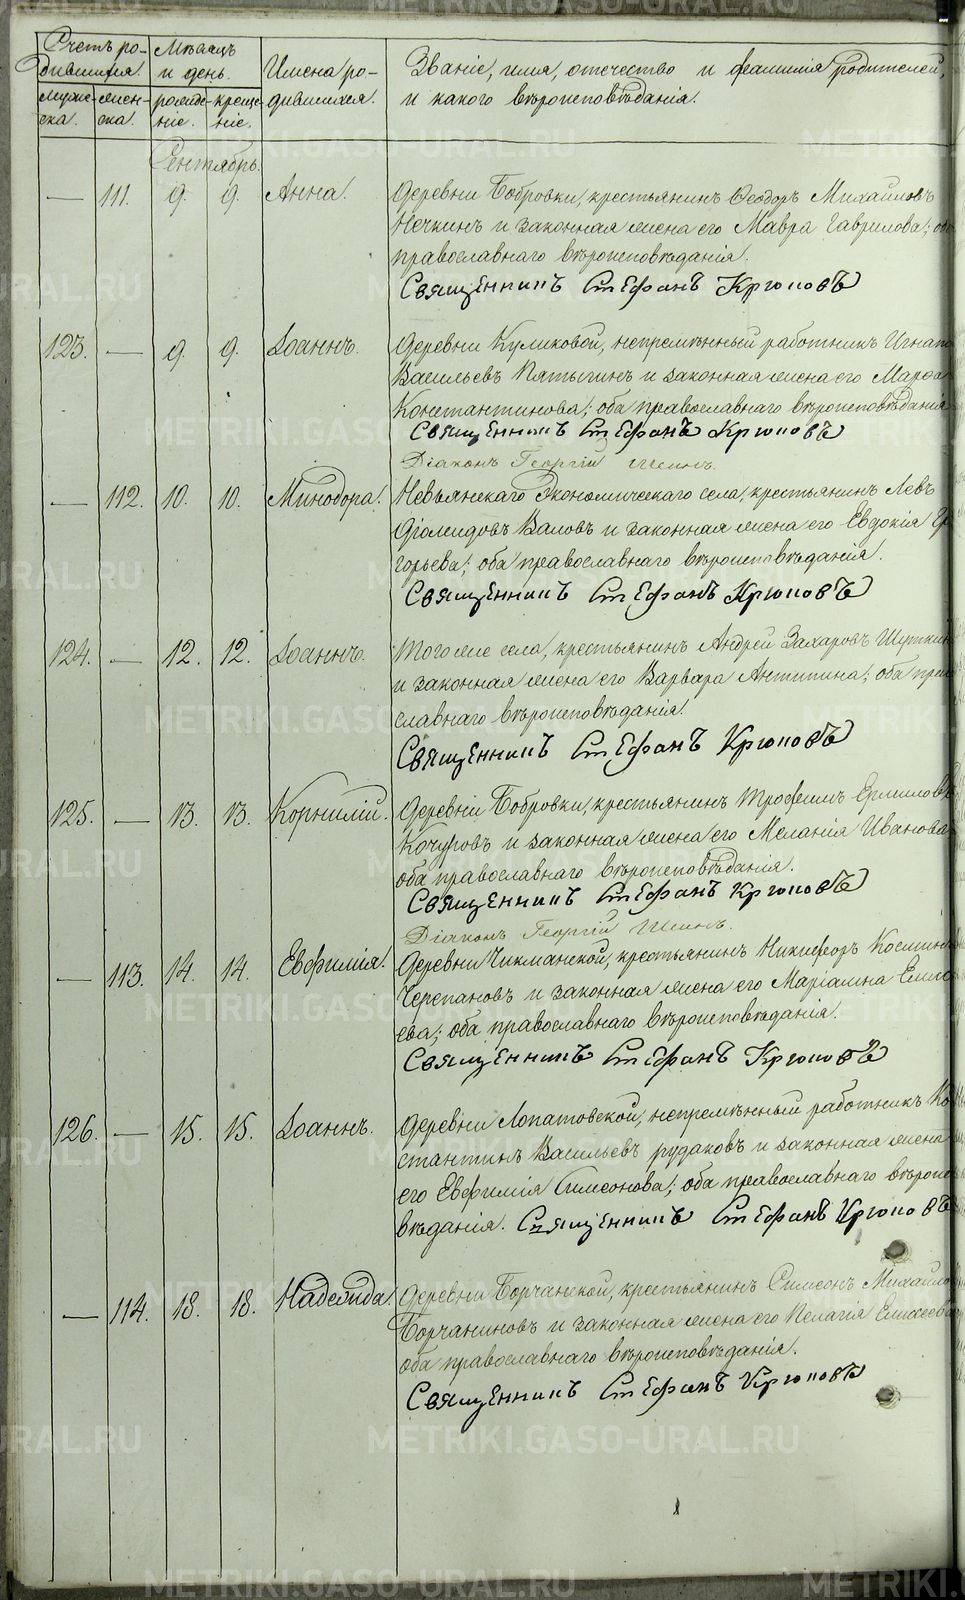 Счетъ ро-
дившихся.
Мѣсяцъ
и день.
Имена ро-
дившихся.
Званіе, имя, отечество и фамилія родителей,
и какого вѣроисповѣданія.
Муже-
ска.
Жен-
ска.
рожде-
ніе.
креще-
ніе.
Сентябрь.
— 111. 9. 9. Анна.
Деревни Бобровки, крестьянинъ Ѳеодоръ Михайловъ
Нечкинъ и законная жена его Мавра Гаврилова;
православнаго вѣроисповѣданія.
Священникъ Стефанъ Крюковъ
123. — 9. 9. Іоаннъ.
Деревни Куликовой, непремѣнный работникъ
Васильевъ Пятыгинъ и законная жена его Марѳа
Константинова; оба православнаго вѣроисповѣданія
Священникъ Стефанъ Крюковъ
Діаконъ Георгій
— 112. 10. 10. Минодора.
Невьянскаго Экономическаго села, крестьянинъ Левъ
Діомидовъ Валовъ и законная жена его Евдокія
горьева; оба православнаго вѣроисповѣданія.
Священникъ Стефанъ Крюковъ
124. — 12. 12. Іоаннъ.
Тогоже села, крестьянинъ Андрей Захаровъ
и законная жена его Варвара Антипина; оба
славнаго вѣроисповѣданія.
Священникъ Стефанъ Крюковъ
125. — 13. 13. Корнилій.
Деревни Бобровки, крестьянинъ Трофимъ Ермиловъ
Кочуговъ и законная жена его Меланія Иванова
оба православнаго вѣроисповѣданія.
Священникъ Стефанъ Крюковъ
Діаконъ Георгій
— 113. 14. 14. Евфимія.
Деревни Чикманской, крестьянинъ Никифоръ Космин
Черепановъ и законная жена его Маріамна Елис
ева; оба православнаго вѣроисповѣданія.
Священникъ Стефанъ Крюковъ
126. — 15. 15. Іоаннъ.
Деревни Лопатовской, непремѣнный работникъ Ко
стантинъ Васильевъ Рудаковъ и законная жена
его Евфимія Симеонова; оба православнаго вѣроиспо
вѣданія. Священникъ Стефанъ Крюковъ
— 114. 18. 18. Надежда.
Деревни Борчанской, крестьянинъ Симеонъ Михайло
Борчаниновъ и законная жена его Пелагія Елисеева
оба православнаго вѣроисповѣданія.
Священникъ Стефанъ Крюковъ
METRIKI.GASO-URAL.RU